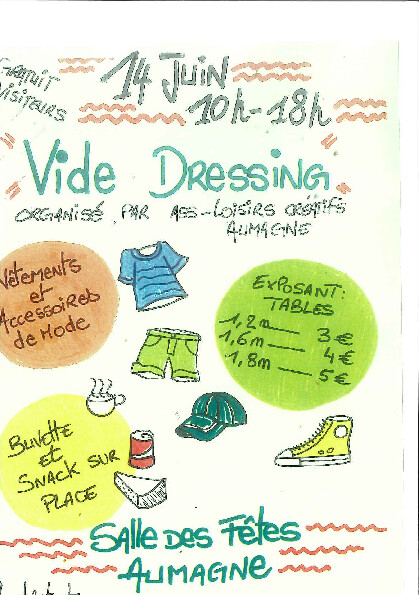 GRATUIT
VISITEURS
14 JUIN
10h-18h
Vide Dressing
ORGANISÉ PAR ASS-LOISIRS CRÉATIFS
AUMAGNE
Vêtements
et
Accessoires
de Mode
EXPOSANT:
TABLES
1,2m — 3€
1,6m — 4€
1,8m — 5€
BUVETTE
et
SNACK SUR
PLACE
SALLE DES FÊTES
AUMAGNE